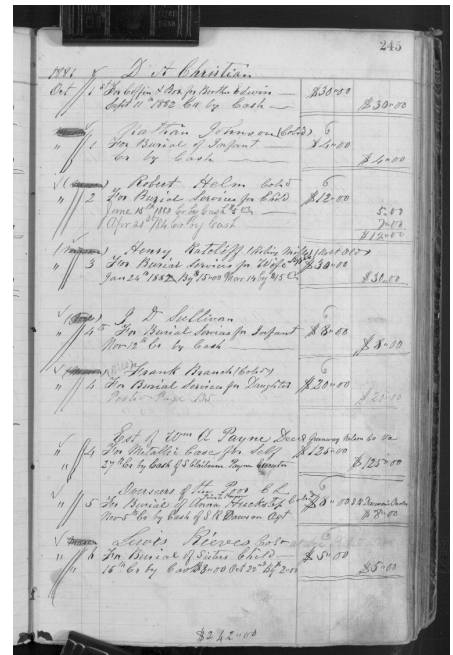 245
1881 D A Christian
Oct 1st For Coffin & Box for Brother Edwin $30=00
Sept 11th 1882 Cr by Cash $30=00
Nathan Johnson (Cold)
" 1 For Burial of Infant $4=00
Cr by Cash $4=00
Robert Helm Cold
" 2 For Burial Services for Child $12=00
June 15th 1882 Cr by Cash 5 5=00
Apr 23rd /84 Cr by Cash 7=00
$12=00
Henry Ratcliff
" 3 For Burial Services for Wife $30=00
Jan 24th 1882 By 15=00 Mar 14 by $15 $30=00
J D Sullivan
" 4th For Burial Services for Infant $8=00
Nov 12th Cr by Cash $8=00
Frank Branch (Cold)
" 4 For Burial Services for Daughter $20=00
$20=00
Est of Wm A Payne Decd
" 4 For Metallic Case for Self $125=00
" 27th Cr by Cash of S Claiborn Payne Executor $125=00
Overseers of the Poor C L
" 5 For Burial of Anna Cold
Nov 5th Cr by Cash of S R Dawson Agt
Lewis Reeves Cold
" 6 For Burial of Sisters Child $5=00
15th Cr by Cash $3=00 Oct 22nd by 2=00 $5=00
$242=00